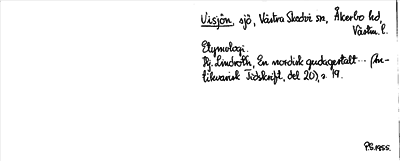 Visjön, sjö, Västra Skedvi sn, Åkerbo hd,
Västm. l.
Etymologi.
Hj. Lindroth, En nordisk gudagestalt ... (An-
tikvarisk Tidskrift, del 20), s. 19.
P.G. 1955.